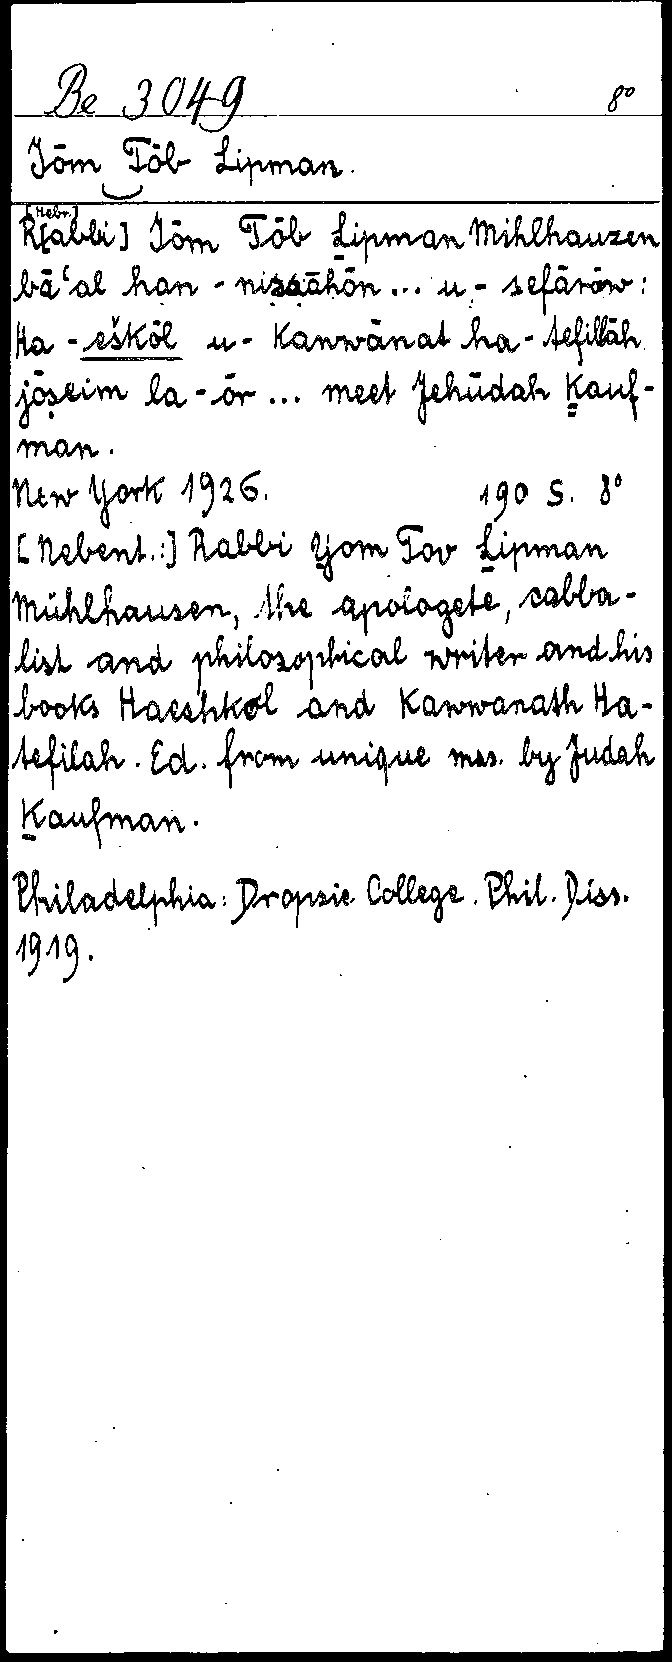 Be 3049 8°
Jōm Ṭōb Lipman.
[Hebr.]
R[abbi] Jōm Ṭōb Lipman Mihlhauzen
bā‘al han-niṣṣāḥōn... u-sefārāw:
Ha-eškōl u-Kanwānat ha-tefillāh
jōṣeim la-ōr... meet Jehūdah Kauf-
man.
New York 1926. 190 S. 8°
[Nebent.:] Rabbi Yom Tov Lipman
Mühlhausen, the apologete, cabba-
list and philosophical writer and his
books Haeshkol and Kawwanath Ha-
tefilah. Ed. from unique mss. by Judah
Kaufman.
Philadelphia: Dropsie College. Phil. Diss.
1919.